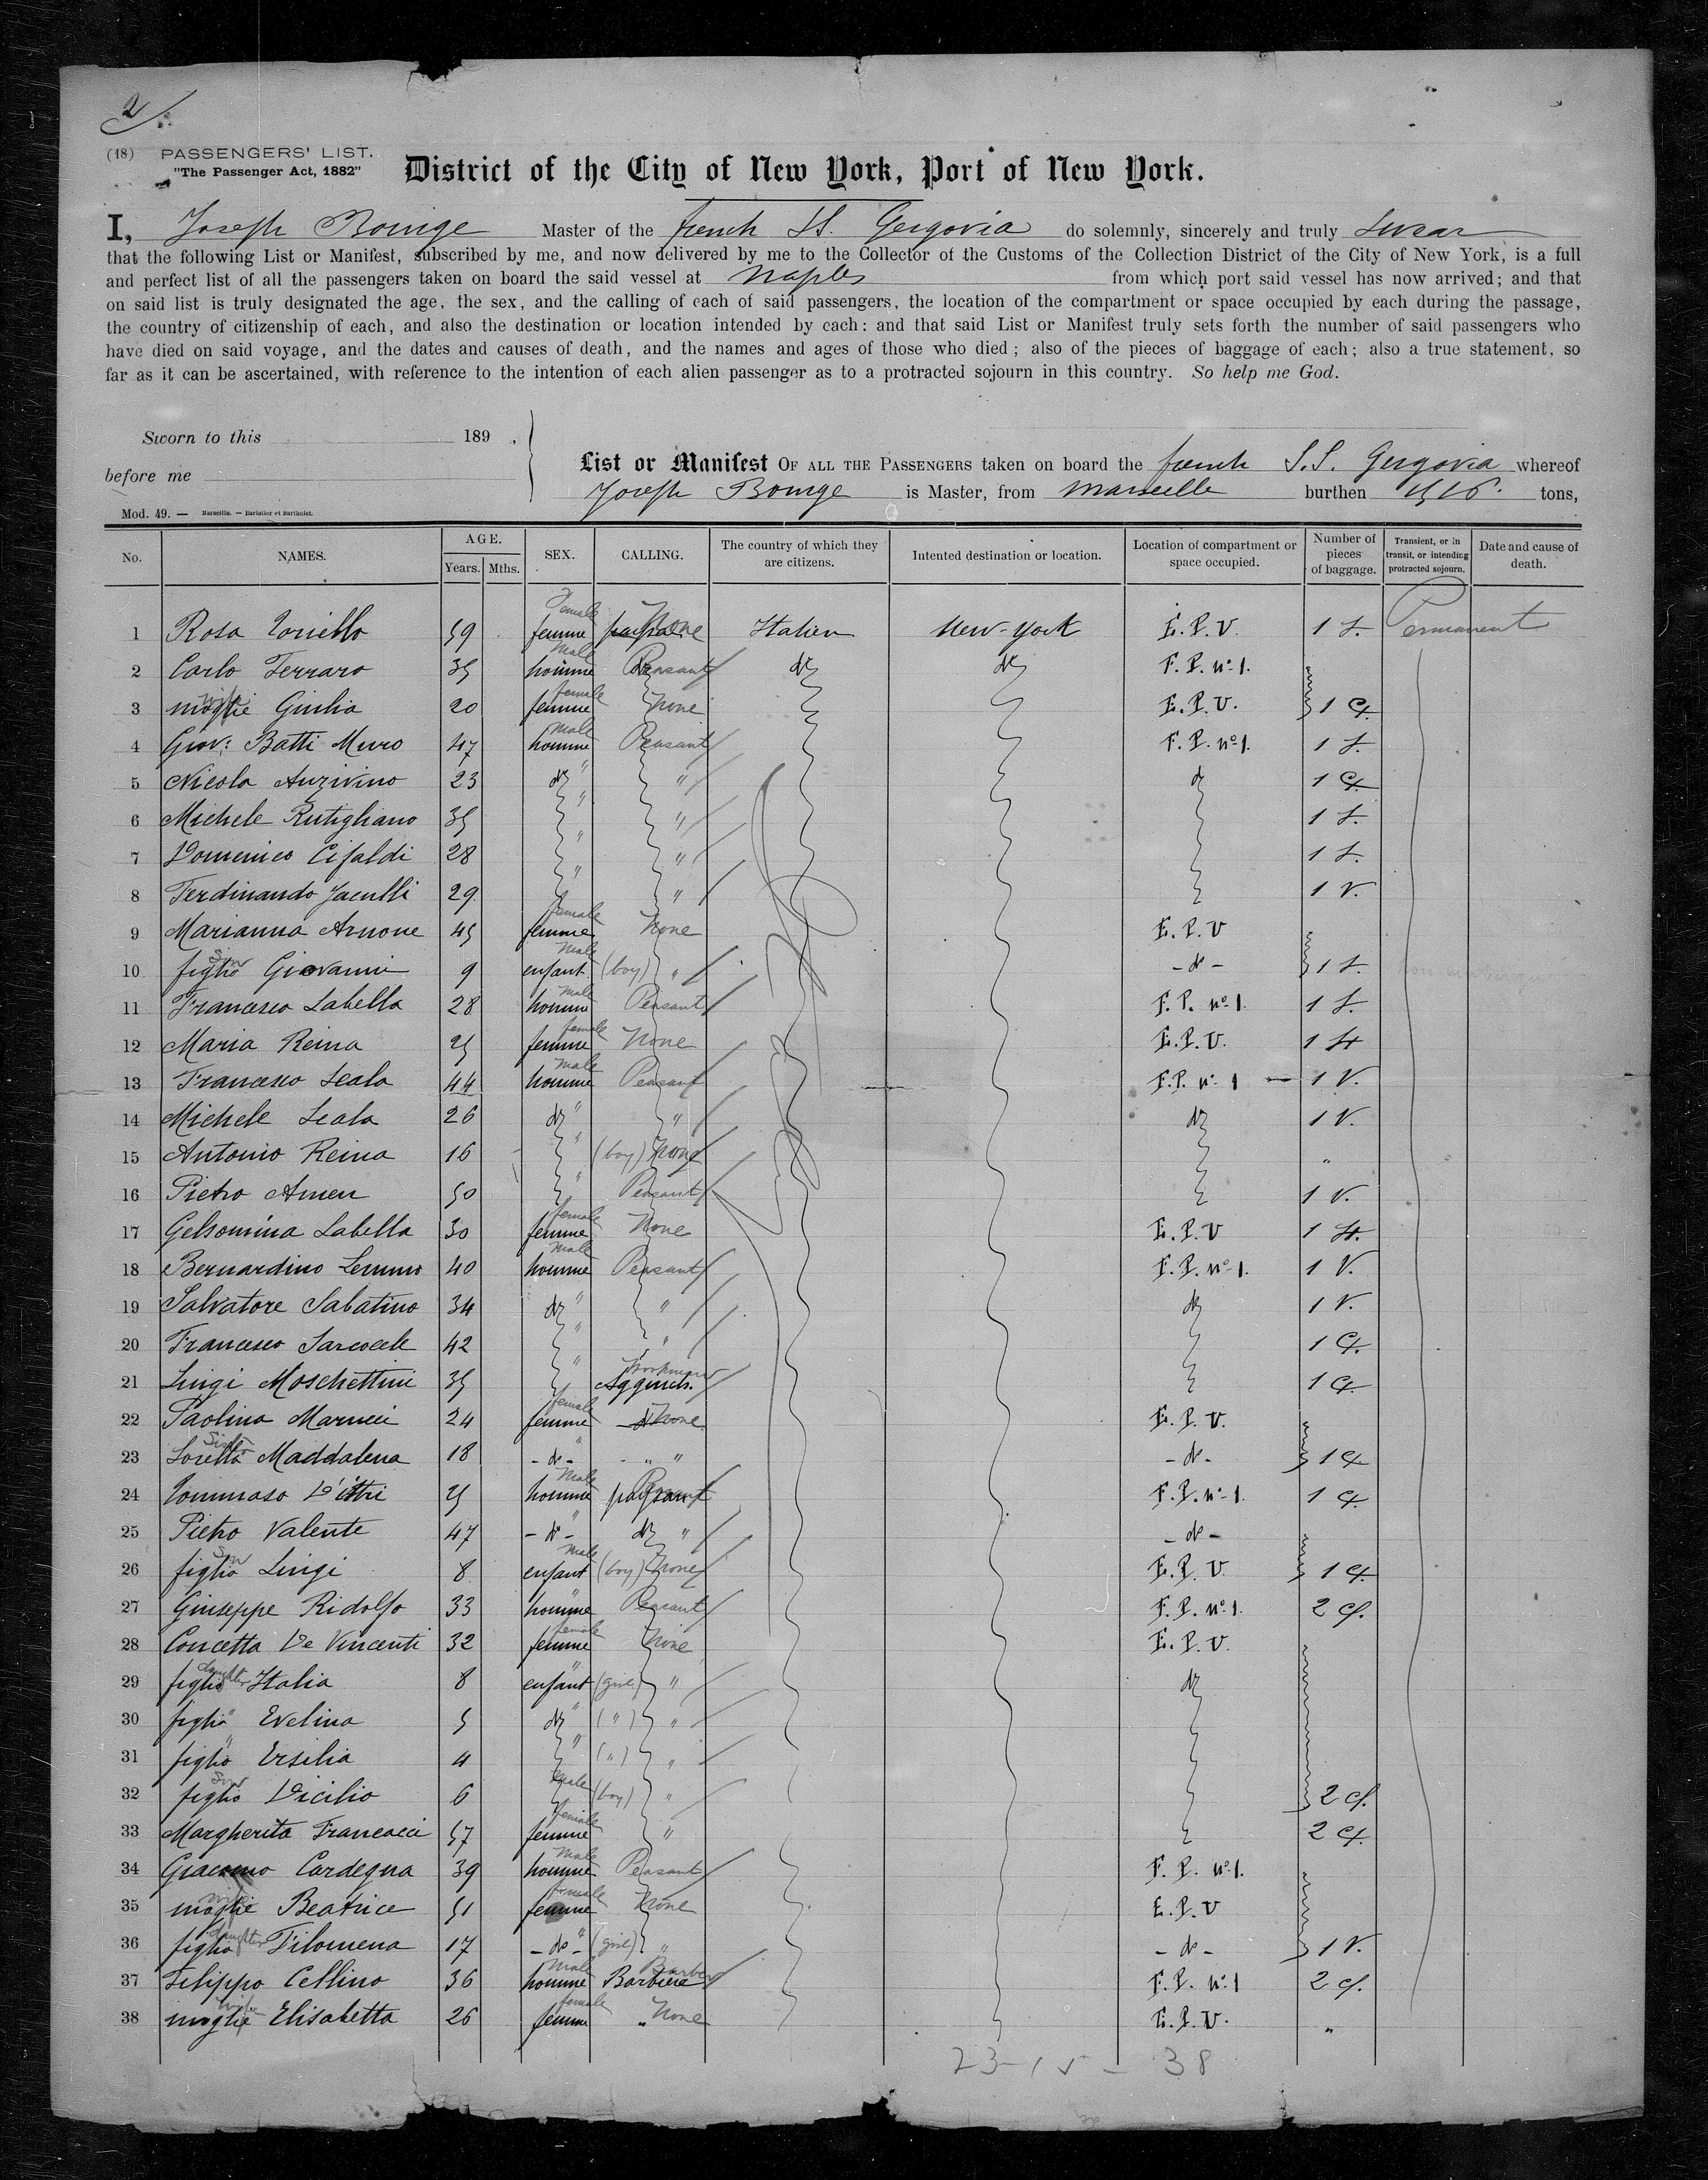 2/
(18) PASSENGERS' LIST.
"The Passenger Act, 1882"
District of the City of New York, Port of New York.
I, Joseph Bourge Master of the french SS. Gergovia do solemnly, sincerely and truly swear
that the following List or Manifest, subscribed by me, and now delivered by me to the Collector of the Customs of the Collection District of the City of New York, is a full
and perfect list of all the passengers taken on board the said vessel at Naples from which port said vessel has now arrived; and that
on said list is truly designated the age, the sex, and the calling of each of said passengers, the location of the compartment or space occupied by each during the passage,
the country of citizenship of each, and also the destination or location intended by each: and that said List or Manifest truly sets forth the number of said passengers who
have died on said voyage, and the dates and causes of death, and the names and ages of those who died; also of the pieces of baggage of each; also a true statement, so
far as it can be ascertained, with reference to the intention of each alien passenger as to a protracted sojourn in this country. So help me God.
Sworn to this 189 ,
before me
List or Manifest OF ALL THE PASSENGERS taken on board the french S.S. Gergovia whereof
Joseph Bourge is Master, from Marseille burthen tons,
Mod. 49. — Marseille. — Barlatier et Barthelet.
No. NAMES. AGE. Years. Mths. SEX. CALLING. The country of which they are citizens. Intented destination or location. Location of compartment or space occupied. Number of pieces of baggage. Transient, or in transit, or intending protracted sojourn. Date and cause of death.
1 Rosa Toriello 59 femme Female None Italien New-York E.P.V. 1 S. Permanent
2 Carlo Ferraro 35 homme Male Peasant do do F.P. nº 1.
3 moglie wife Giulia 20 femme female None E.P.V. 1 C.
4 Giov: Batti Muro 47 homme Male Peasant F.P. nº 1. 1 S.
5 Nicola Auzivino 23 do " " d 1 C.
6 Michele Rutigliano 35 " " 1 S.
7 Domenico Cifaldi 28 " " 1 S.
8 Ferdinando Jaculli 29 " " 1 V.
9 Marianna Arnone 45 femme female None E.P.V
10 figlio Son Giovanni 9 enfant Male (boy) " - do - 1 S.
11 Francesco Labella 28 homme male Peasant F.P. nº 1. 1 S.
12 Maria Reina 25 femme female None E.P.V. 1 H
13 Francesco Scala 44 homme Male Peasant F.P. nº 1 1 V.
14 Michele Scala 26 do " " do 1 V.
15 Antonio Reina 16 " (boy) None "
16 Pietro Amen 50 " Peasant 1 V.
17 Gelsomina Labella 30 femme female None E.P.V 1 H.
18 Bernardino Lemmo 40 homme Male Peasant F.P. nº 1. 1 V.
19 Salvatore Sabatino 34 do " " do 1 V.
20 Francesco Sarcocele 42 " " 1 C.
21 Luigi Moschettini 35 " Workman 1 C.
22 Paolina Marucci 24 femme female None E.P.V.
23 Sorella Sister Maddalena 18 - do - " " - do - 1 C
24 Tommaso D'istri 25 homme Male Peasant F.P. nº 1. 1 C.
25 Pietro Valente 47 - do - " do " - do -
26 figlio Son Luigi 8 enfant male (boy) None E.P.V 1 C.
27 Giuseppe Ridolfo 33 homme " Peasant F.P. nº 1. 2 C.
28 Concetta De Vincenti 32 femme female None E.P.V.
29 figlia daughter Italia 8 enfant " (girl) " do
30 figlia " Evelina 5 do " (") "
31 figlia " Ersilia 4 " (") "
32 figlio Son Dicilio 6 male (boy) " 2 C.
33 Margherita Francacci 57 femme female " 2 C.
34 Giacomo Cardegna 39 homme Male Peasant F.P. nº 1.
35 moglie wife Beatrice 51 femme female None E.P.V
36 figlia daughter Filomena 17 - do - " (girl) " - do - 1 V.
37 Filippo Cellino 36 homme Male Barbiere Barber F.P. nº 1 2 C.
38 moglie wife Elisabetta 26 femme female " None E.P.V. "
23-15 - 38